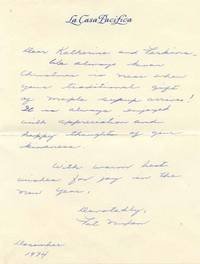 La Casa Pacifica
Dear Katherine and Perkins -
We always know
Christmas is near when
your traditional gift
of maple syrup arrives!
It is always enjoyed
with appreciation and
happy thoughts of your
kindness.
With warm best
wishes for joy in the
New Year,
Devotedly,
Pat Nixon
December
1974